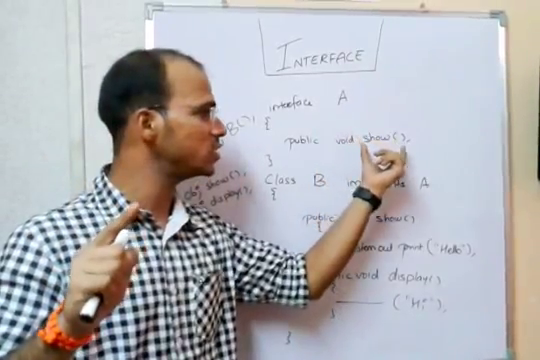 INTERFACE
interface A
{
public void show();
}
Class B A
{
public show()
{
("Hello");
void display()
{
("Hi");
}
}
show();
display();